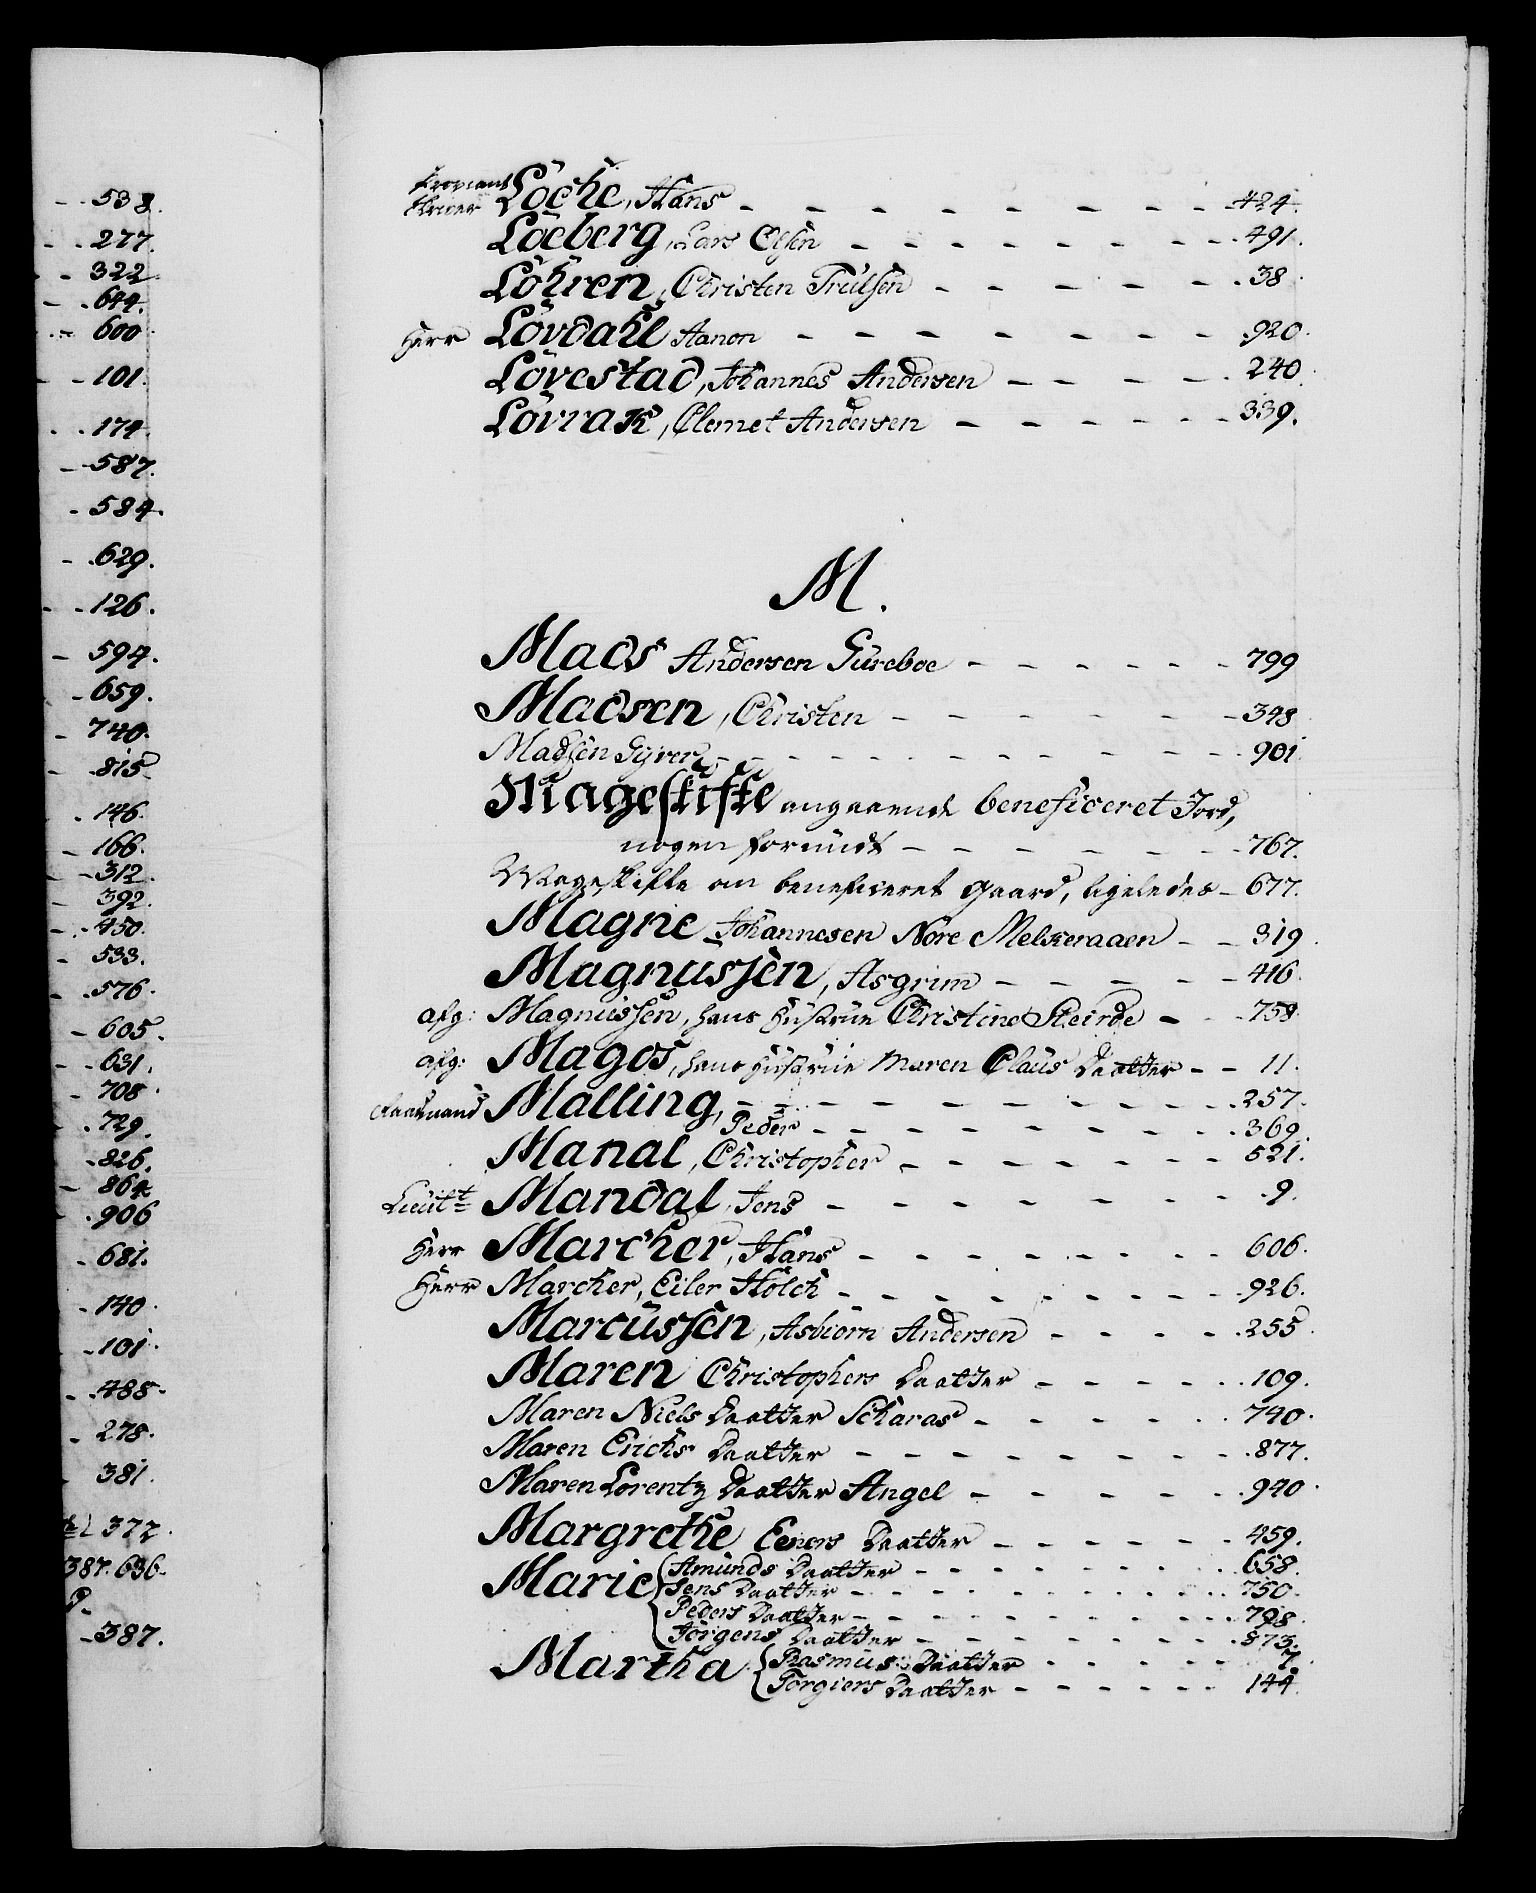 538.
277.
322.
644.
600
101.
174.
587.
584.
629.
126.
594.
659.
740.
815
146.
166.
312.
392.
450.
533.
576.
605.
631.
708.
729.
826.
864
906
681.
140.
101.
488.
278.
381.
372.
387. 636.
387.
Proviant
skriver Löche, Hans 424.
Löeberg, Lars Olsen 491.
Löhren, Christen Trulsen 38
Herr Lövdahl Hanon 920.
Lövestad, Johannes Andersen 240
Lövrak, Clemet Andersen 339.
M.
Mads Andersen Gureboe 799
Madsen, Christen 348
Madsen Gyrer 901
Mageskifte angaaende beneficeret Jord,
nogen forundt 767.
Mageskifte om beneficeret Gaard, ligeledes 677.
Magne Johannesen Nore Melkeraaen 319.
Magnussen, Asgrim 416
afg: Magnussen, hans Hustrue Christine Steirde 758
afg: Magos, hans Hustrue Maren Claus Daatter 11.
Raadmand Malling, 257.
Peder 369.
Manal, Christopher 521.
Lieutt Mandal, Jens 9.
Herr Marcher, Hans 606.
Herr Marcher, Eiler Holch 926.
Marcussen, Asbiörn Andersen 255.
Maren Christophers Daatter 109.
Maren Niels Daatter Scharas 740.
Maren Erichs Daatter 877.
Maren Lorentz Daatter Angel 940.
Margrethe Eeners Daatter 459.
Marie Amunds Daatter 658.
Jens Daatter 750.
Peders Daatter 798.
Jörgens Daatter 873.
Martha Rasmus Daatter 7.
Torgiers Daatter 144.